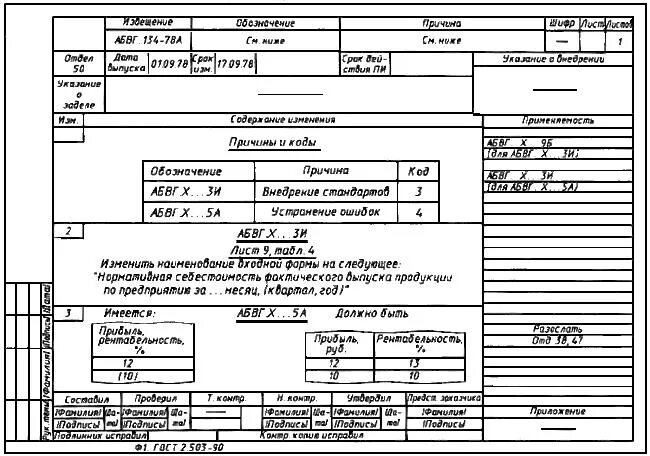 Извещение Обозначение Причина Шифр Лист Листов
АБВГ.134-78А См. ниже См. ниже — 1
Отдел 50 Дата выпуска 01.09.78 Срок изм. 17.09.78 Срок действия ПИ Указание о внедрении
Указание о заделе — —
Изм. Содержание изменения Применяемость
Причины и коды
АБВГ. Х... 9Б
(для АБВГ. Х... 3И)
Обозначение Причина Код
АБВГ.Х...3И Внедрение стандартов 3
АБВГ. Х... 3И
(для АБВГ. Х... 5А)
АБВГ.Х...5А Устранение ошибок 4
2 АБВГ.Х... 3И
Лист 9, табл. 4
Изменить наименование входной формы на следующее:
"Нормативная себестоимость фактического выпуска продукции
по предприятию за ... месяц, (квартал, год)"
3 Имеется: АБВГ.Х...5А Должно быть
Прибыль, рентабельность, %
12
(10)
Прибыль, руб. Рентабельность, %
12 13
10 10
Разослать
Отд 38, 47
Составил Проверил Т. контр. Н. контр. Утвердил Предст. заказчика
(Фамилия) (Дата) (Фамилия) (Дата) — (Фамилия) (Дата) (Фамилия) (Дата) (Фамилия)
(Подпись) (Подпись) (Подпись) (Подпись) (Подпись)
Приложение
—
Подлинник исправил Контр. копию исправил
Ф1. ГОСТ 2.503-90
(Фамилия) (Подпись) (Дата)